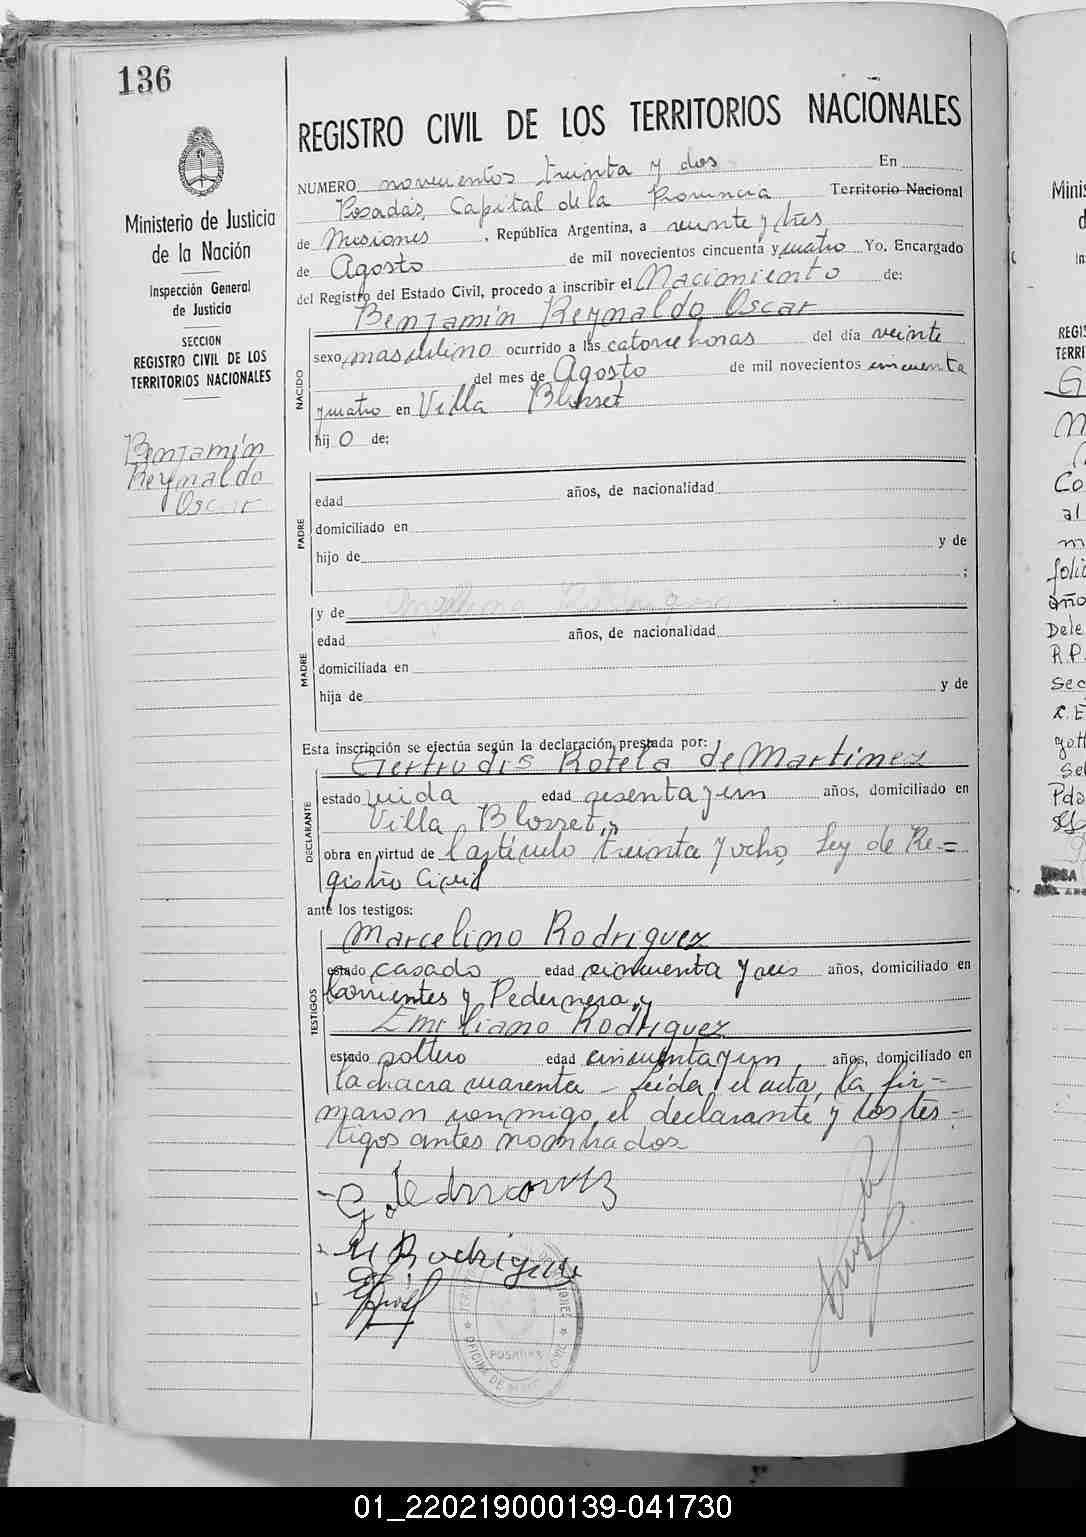 136
REGISTRO CIVIL DE LOS TERRITORIOS NACIONALES
Ministerio de Justicia
de la Nación
Inspección General
de Justicia
SECCION
REGISTRO CIVIL DE LOS
TERRITORIOS NACIONALES
Benjamín
Reynaldo
Oscar
NUMERO novecientos treinta y dos En
Posadas, Capital de la Provincia Territorio Nacional
de Misiones, República Argentina, a veinte y tres
de Agosto de mil novecientos cincuenta y cuatro Yo, Encargado
del Registro del Estado Civil, procedo a inscribir el Nacimiento de:
Benjamín Reynaldo Oscar
NACIDO
sexo masculino ocurrido a las catorce horas del día veinte
del mes de Agosto de mil novecientos cincuenta
y cuatro en Villa Blosset
hij o de:
PADRE
edad años, de nacionalidad
domiciliado en
hijo de y de
;
MADRE
y de
edad años, de nacionalidad
domiciliada en
hija de y de
Esta inscripción se efectúa según la declaración prestada por:
Gertrudis Rotela de Martínez
DECLARANTE
estado viuda edad sesenta y un años, domiciliado en
Villa Blosset, y
obra en virtud de l'artículo treinta y ocho, Ley de Re=
gistro Civil
ante los testigos:
Marcelino Rodriguez
TESTIGOS
estado casado edad cincuenta y seis años, domiciliado en
Corrientes y Pedernera, y
Emiliano Rodriguez
estado soltero edad cincuenta y un años, domiciliado en
la chacra cuarenta - Leída el acta, la fir-
maron conmigo, el declarante y los tes-
tigos antes nombrados
M Rodriguez
POSADAS
01_220219000139-041730